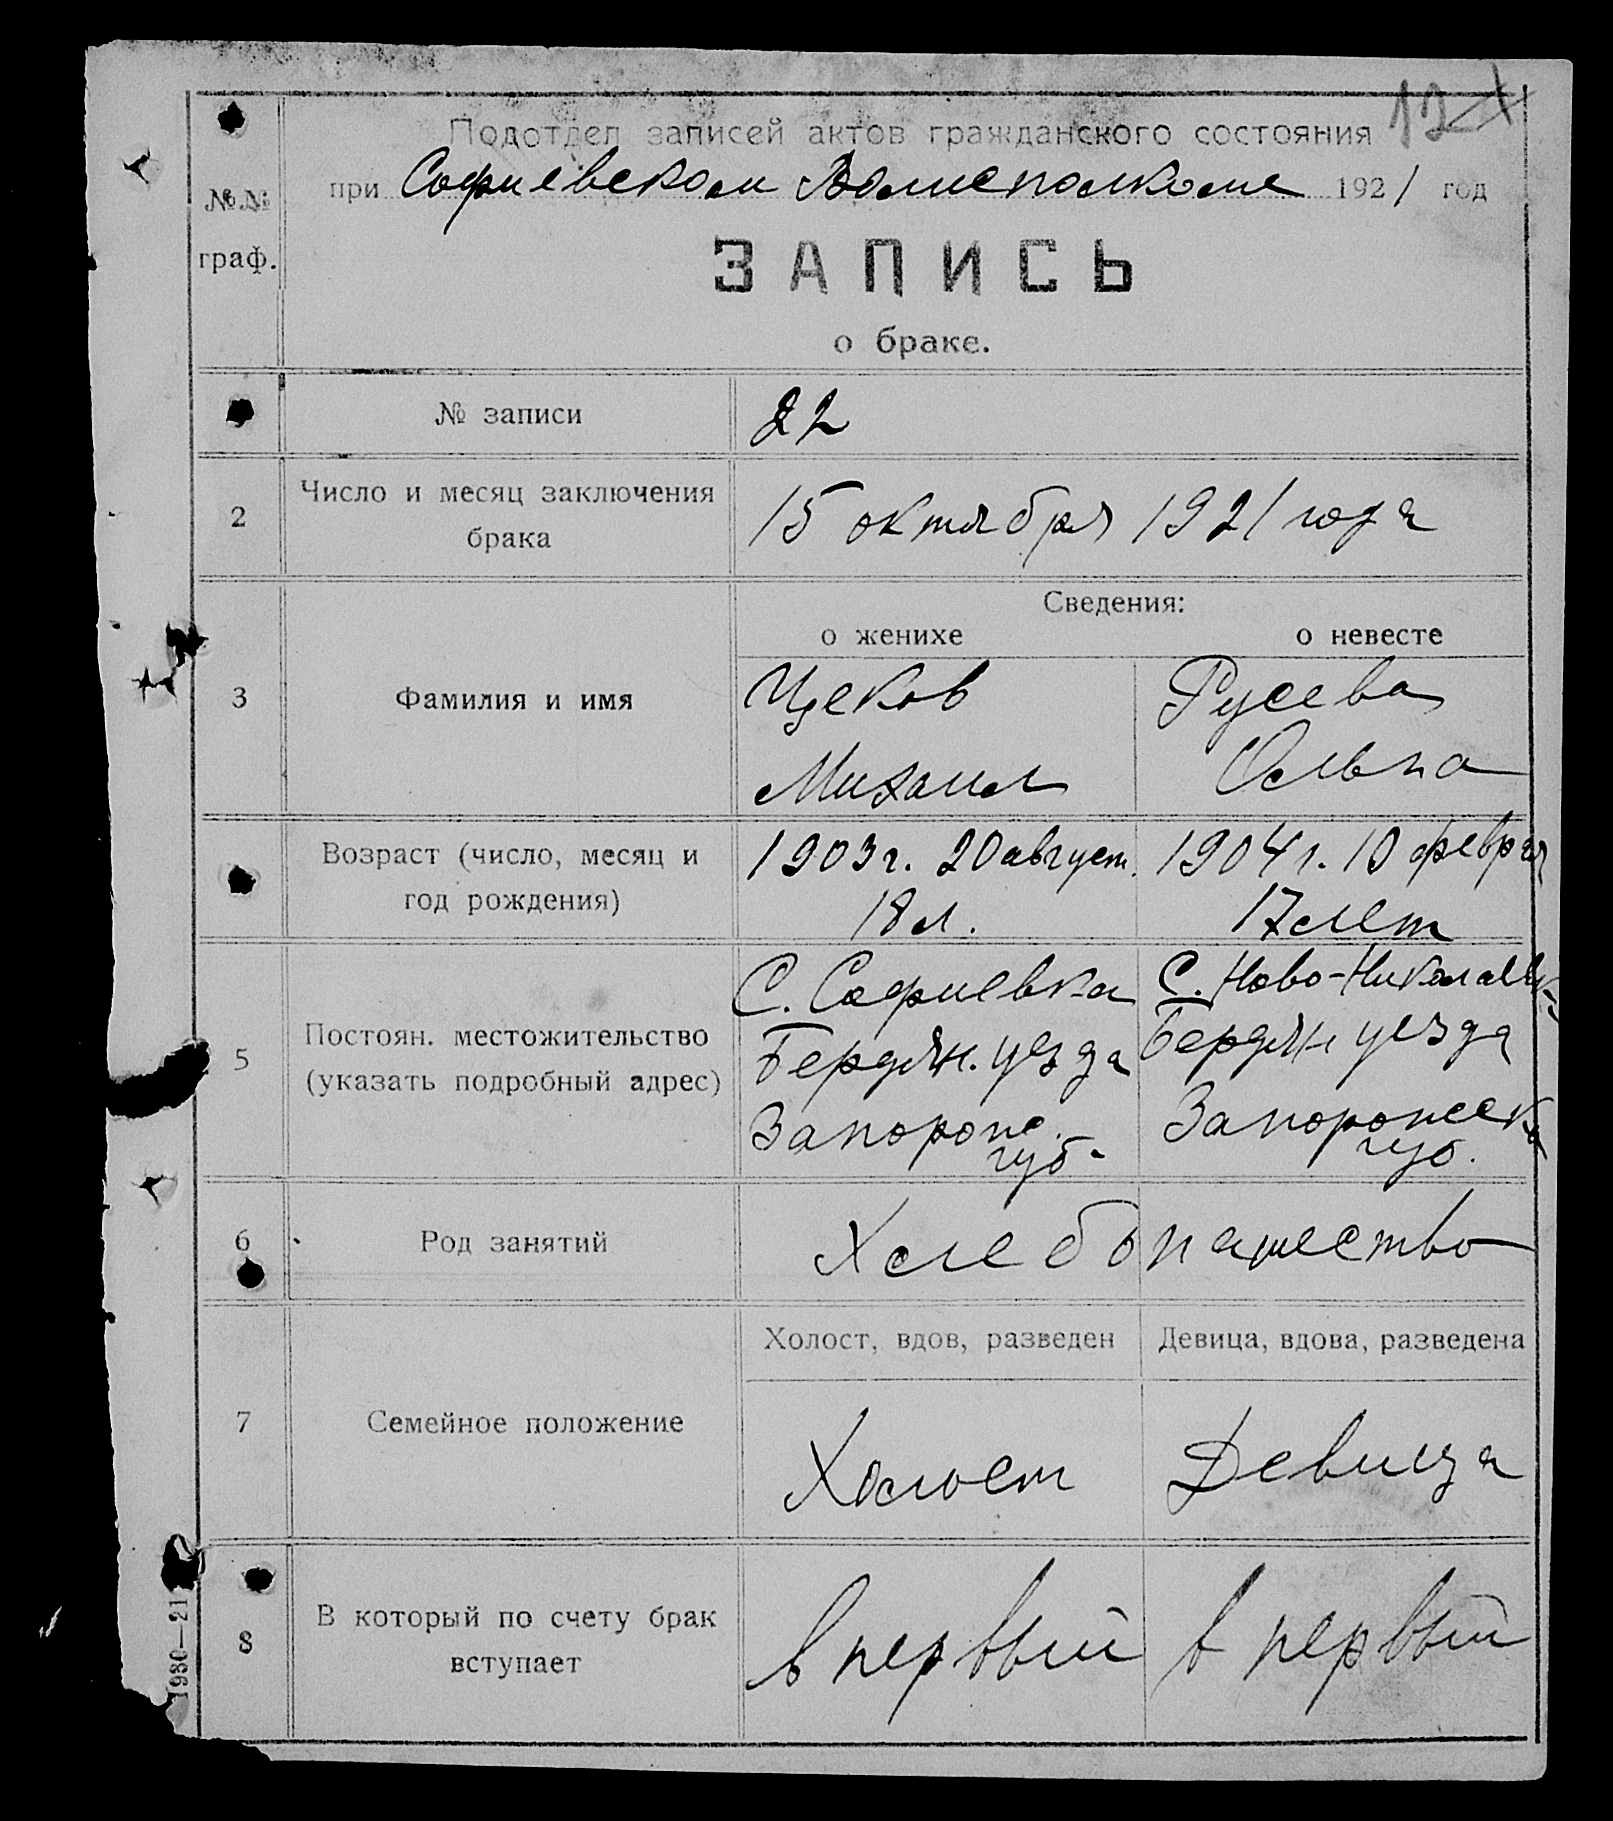 Подотдел записей актов гражданского состояния
при Софиевском Волисполкоме 1921 год
№№
граф.
ЗАПИСЬ
о браке.
№ записи 22
2 Число и месяц заключения
брака
15 октября 1921 года
Сведения:
о женихе о невесте
3 Фамилия и имя
Цеков Русева
Михаил Ольга
Возраст (число, месяц и
год рождения)
1903 г. 20 август. 1904 г. 10 февраля
18 л. 17 лет
5 Постоян. местожительство
(указать подробный адрес)
С. Софиевка С. Ново-Николаевк
Бердян. уезда Бердян уезда
Запорож. Запорожск
губ. губ.
6 Род занятий Хлебопашество
Холост, вдов, разведен Девица, вдова, разведена
7 Семейное положение
Холост Девица
8 В который по счету брак
вступает
в первый в первый
1930—21